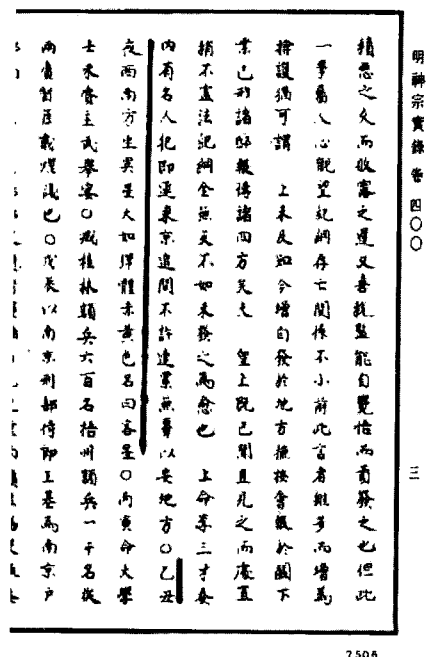 明神宗實錄卷四〇〇
三
積忠之久而收審之遲又喜稅監能自覺悟而首發之也但此
一事屬人心觀望紀綱存亡關係不小前此言者雖多而增為
掩護猶可謂　上未及知今增自發於地方撫按會議於闕下
業已形諸邸報傳諸四方矣夫　皇上既已聞且見之而處置
稍不盡法紀綱全無矣不如未發之為愈也　上命李三才委
內有名人犯即逐來京追問不許連累無辜以安地方〇乙丑
夜西南方生異星大如彈體赤黃色名曰客星〇丙寅命大學
士朱賡主武舉宴〇減桂林額兵六百名梧州額兵一千名從
兩廣督臣戴燿議也〇戊辰以南京刑部侍郎王基為南京戶
7506